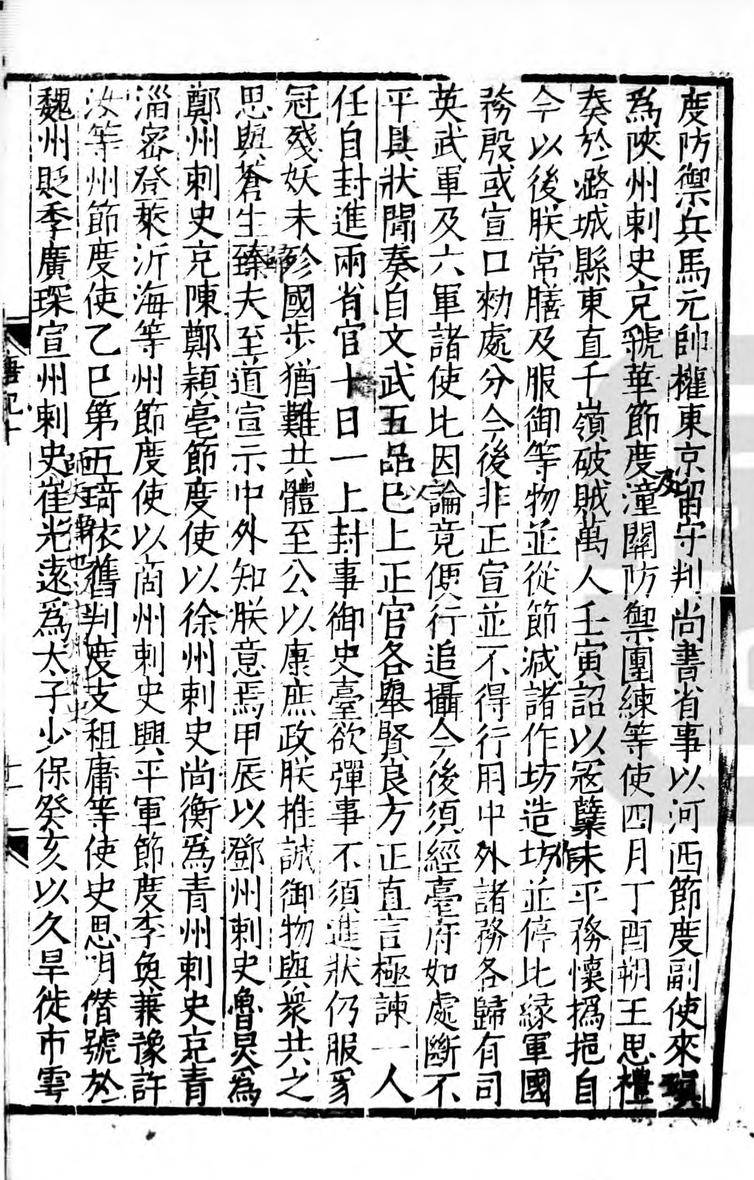 度防禦兵馬元帥權東京留守判尚書省事以河西節度副使來瑱
為陝州刺史充虢華節度潼關防禦團練等使四月丁酉朔王思禮
奏於潞城縣東直千嶺破賊萬人壬寅詔以寇孽未平務懷撝挹自
今以後朕常膳及服御等物並從節減諸作坊造坊並停比緣軍國
務殷或宣口勑處分今後非正宣並不得行用中外諸務各歸有司
英武軍及六軍諸使比因論竟便行追攝今後須經臺府如處斷不
平具狀聞奏自文武五品已上正官各舉賢良方正直言極諫一人
任自封進兩省官十日一上封事御史臺欲彈事不須進狀仍服豸
冠殘妖未殄國步猶難共體至公以康庶政朕推誠御物與衆共之
思與蒼生臻夫至道宣示中外知朕意焉甲辰以鄧州刺史魯炅為
鄭州刺史充陳鄭潁亳節度使以徐州刺史尚衡為青州刺史充青
淄密登萊沂海等州節度使以商州刺史興平軍節度李奐兼豫許
汝等州節度使乙巳第五琦依舊判度支租庸等使史思明僭號於
魏州貶季廣琛宣州刺史崔光遠為太子少保癸亥以久旱徙市雩
唐紀十
十一